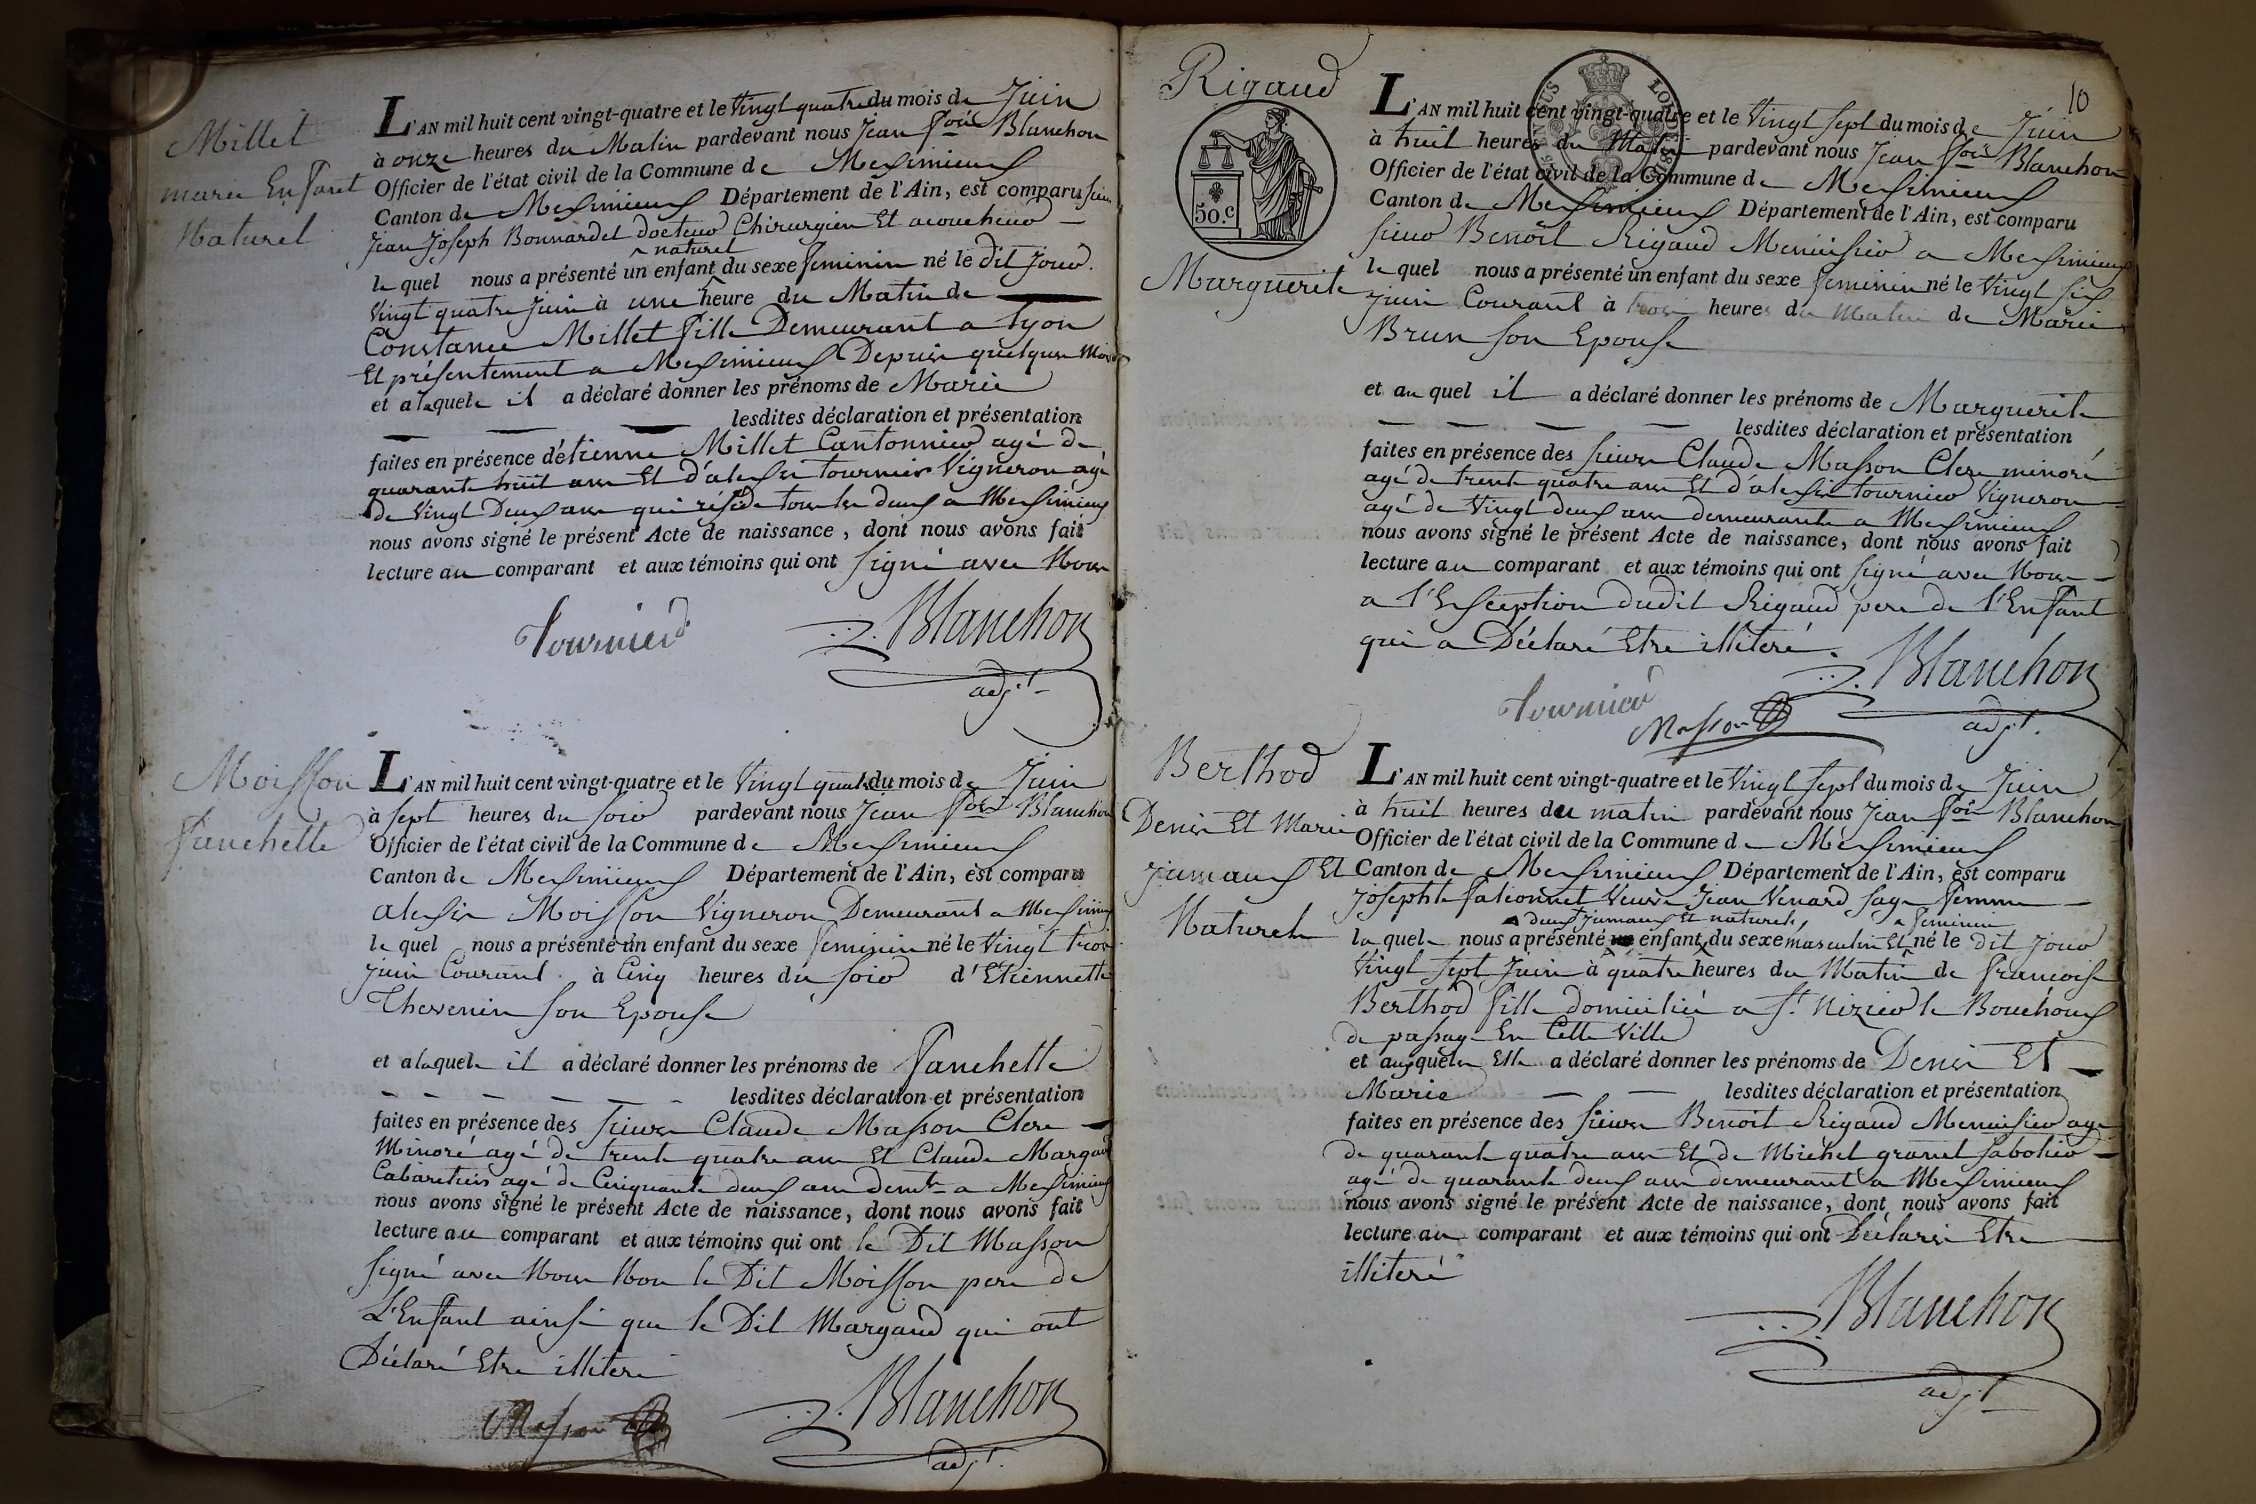 Millet
marie Enfant
Naturel
L'AN mil huit cent vingt-quatre et le Vingt quatre du mois de Juin
à onze heures du Matin pardevant nous Jean fois Blanchon
Officier de l'état civil de la Commune de Meximieux
Canton de Meximieux Département de l'Ain, est comparu sieur
Jean Joseph Bonnardel docteur Chirurgien Et acoucheur
naturel
le quel nous a présenté un enfant du sexe feminin né le dit jour
Vingt quatre Juin à une heure du Matin de
Constance Millet fille Demeurant a Lyon
Et présentement a Meximieux Depuis quelques Mois
et a laquele il a déclaré donner les prénoms de Marie
lesdites déclaration et présentation
faites en présence d'étienne Millet Cantonnier agé de
quarante huit ans Et d'alexis tournier Vigneron agé
de Vingt Deux ans qui réside tous les deux a Meximieux
nous avons signé le présent Acte de naissance, dont nous avons fait
lecture au comparant et aux témoins qui ont signé avec Nous
Tournier
Blanchon
adjt
Moisson
fanchette
L'AN mil huit cent vingt-quatre et le Vingt quatre du mois de Juin
à sept heures du soir pardevant nous Jean fois Blanchon
Officier de l'état civil de la Commune de Meximieux
Canton de Meximieux Département de l'Ain, est comparu
alexis Moisson Vigneron Demeurant a Meximieux
le quel nous a présenté un enfant du sexe feminin né le Vingt trois
juin Courant à Cinq heures du soir d'Etiennette
Thevenin son Epouse
et a laquele il a déclaré donner les prénoms de fanchette
lesdites déclaration et présentation
faites en présence des sieurs Claude Masson Clerc
Minoré agé de trente quatre ans Et Claude Margaud
Cabaretier agé de Cinquante deux ans demts a Meximieux
nous avons signé le présent Acte de naissance, dont nous avons fait
lecture au comparant et aux témoins qui ont le Dit Masson
signé avec Nous Non le Dit Moisson pere de
L'Enfant ainsi que le Dit Margaud qui ont
Déclaré Etre illiteré
Masson
Blanchon
adjt.
10
Rigaud
50.c
Marguerite
L'AN mil huit cent vingt-quatre et le Vingt sept du mois de Juin
à huit heures du Matin pardevant nous Jean fois Blanchon
Officier de l'état civil de la Commune de Meximieux
Canton de Meximieux Département de l'Ain, est comparu
sieur Benoit Rigaud Menuisier a Meximieux
le quel nous a présenté un enfant du sexe feminin né le Vingt six
juin Courant à trois heures du Matin de Marie
Brun son Epouse
et au quel il a déclaré donner les prénoms de Marguerite
lesdites déclaration et présentation
faites en présence des sieurs Claude Masson Clerc minoré
agé de trente quatre ans Et d'alexis tournier Vigneron
agé de Vingt deux ans demeurants a Meximieux
nous avons signé le présent Acte de naissance, dont nous avons fait
lecture au comparant et aux témoins qui ont signé avec Nous
a l'Exception dudit Rigaud pere de l'Enfant
qui a Déclaré Etre illiteré.
Tournier
Masson
Blanchon
adjt.
Berthod
Denis Et Marie
jumaux Et
Naturels
L'AN mil huit cent vingt-quatre et le Vingt sept du mois de Juin
à huit heures du matin pardevant nous Jean fois Blanchon
Officier de l'état civil de la Commune de Meximieux
Canton de Meximieux Département de l'Ain, est comparu
josephte falionnet Veuve Jean Venard sage femme
deux jumaux Et naturels, feminin
la quele nous a présenté enfant du sexe masculin Et né le dit jour
Vingt sept Juin à quatre heures du Matin de francoise
Berthod fille domiciliée a St. Nizier le Bouchoux
de passage En Cette Ville
et auxquels Elle a déclaré donner les prénoms de Denis Et
Marie lesdites déclaration et présentation
faites en présence des sieurs Benoit Rigaud Menuisier agé
de quarante quatre ans Et de Michel granet sabotier
agé de quarante deux ans demeurant a Meximieux
nous avons signé le présent Acte de naissance, dont nous avons fait
lecture au comparant et aux témoins qui ont Déclarés Etre
illiteré
Blanchon
adjt